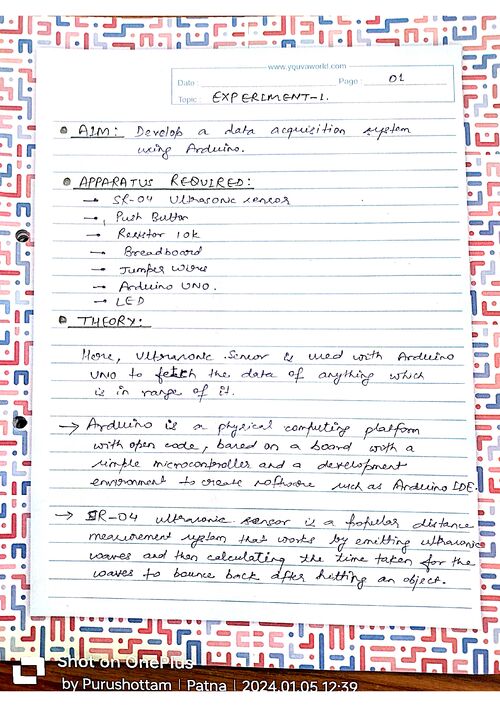 www.youvaworld.com
Date :
Page : 01
Topic : EXPERIMENT-1.
AIM: Develop a data acquisition system
using Arduino.
APPARATUS REQUIRED:
→ SR-04 Ultrasonic sensor
→ Push Button
→ Resistor 10k
→ Breadboard
→ Jumper wire
→ Arduino UNO.
→ LED
THEORY:
Here, Ultrasonic Sensor is used with Arduino
UNO to fetch the data of anything which
is in range of it.
→ Arduino is a physical computing platform
with open code, based on a board with a
simple microcontroller and a development
environment to create software such as Arduino IDE.
→ SR-04 ultrasonic sensor is a popular distance
measurement system that works by emitting ultrasonic
waves and then calculating the time taken for the
waves to bounce back after hitting an object.
Shot on OnePlus
by Purushottam | Patna | 2024.01.05 12:39